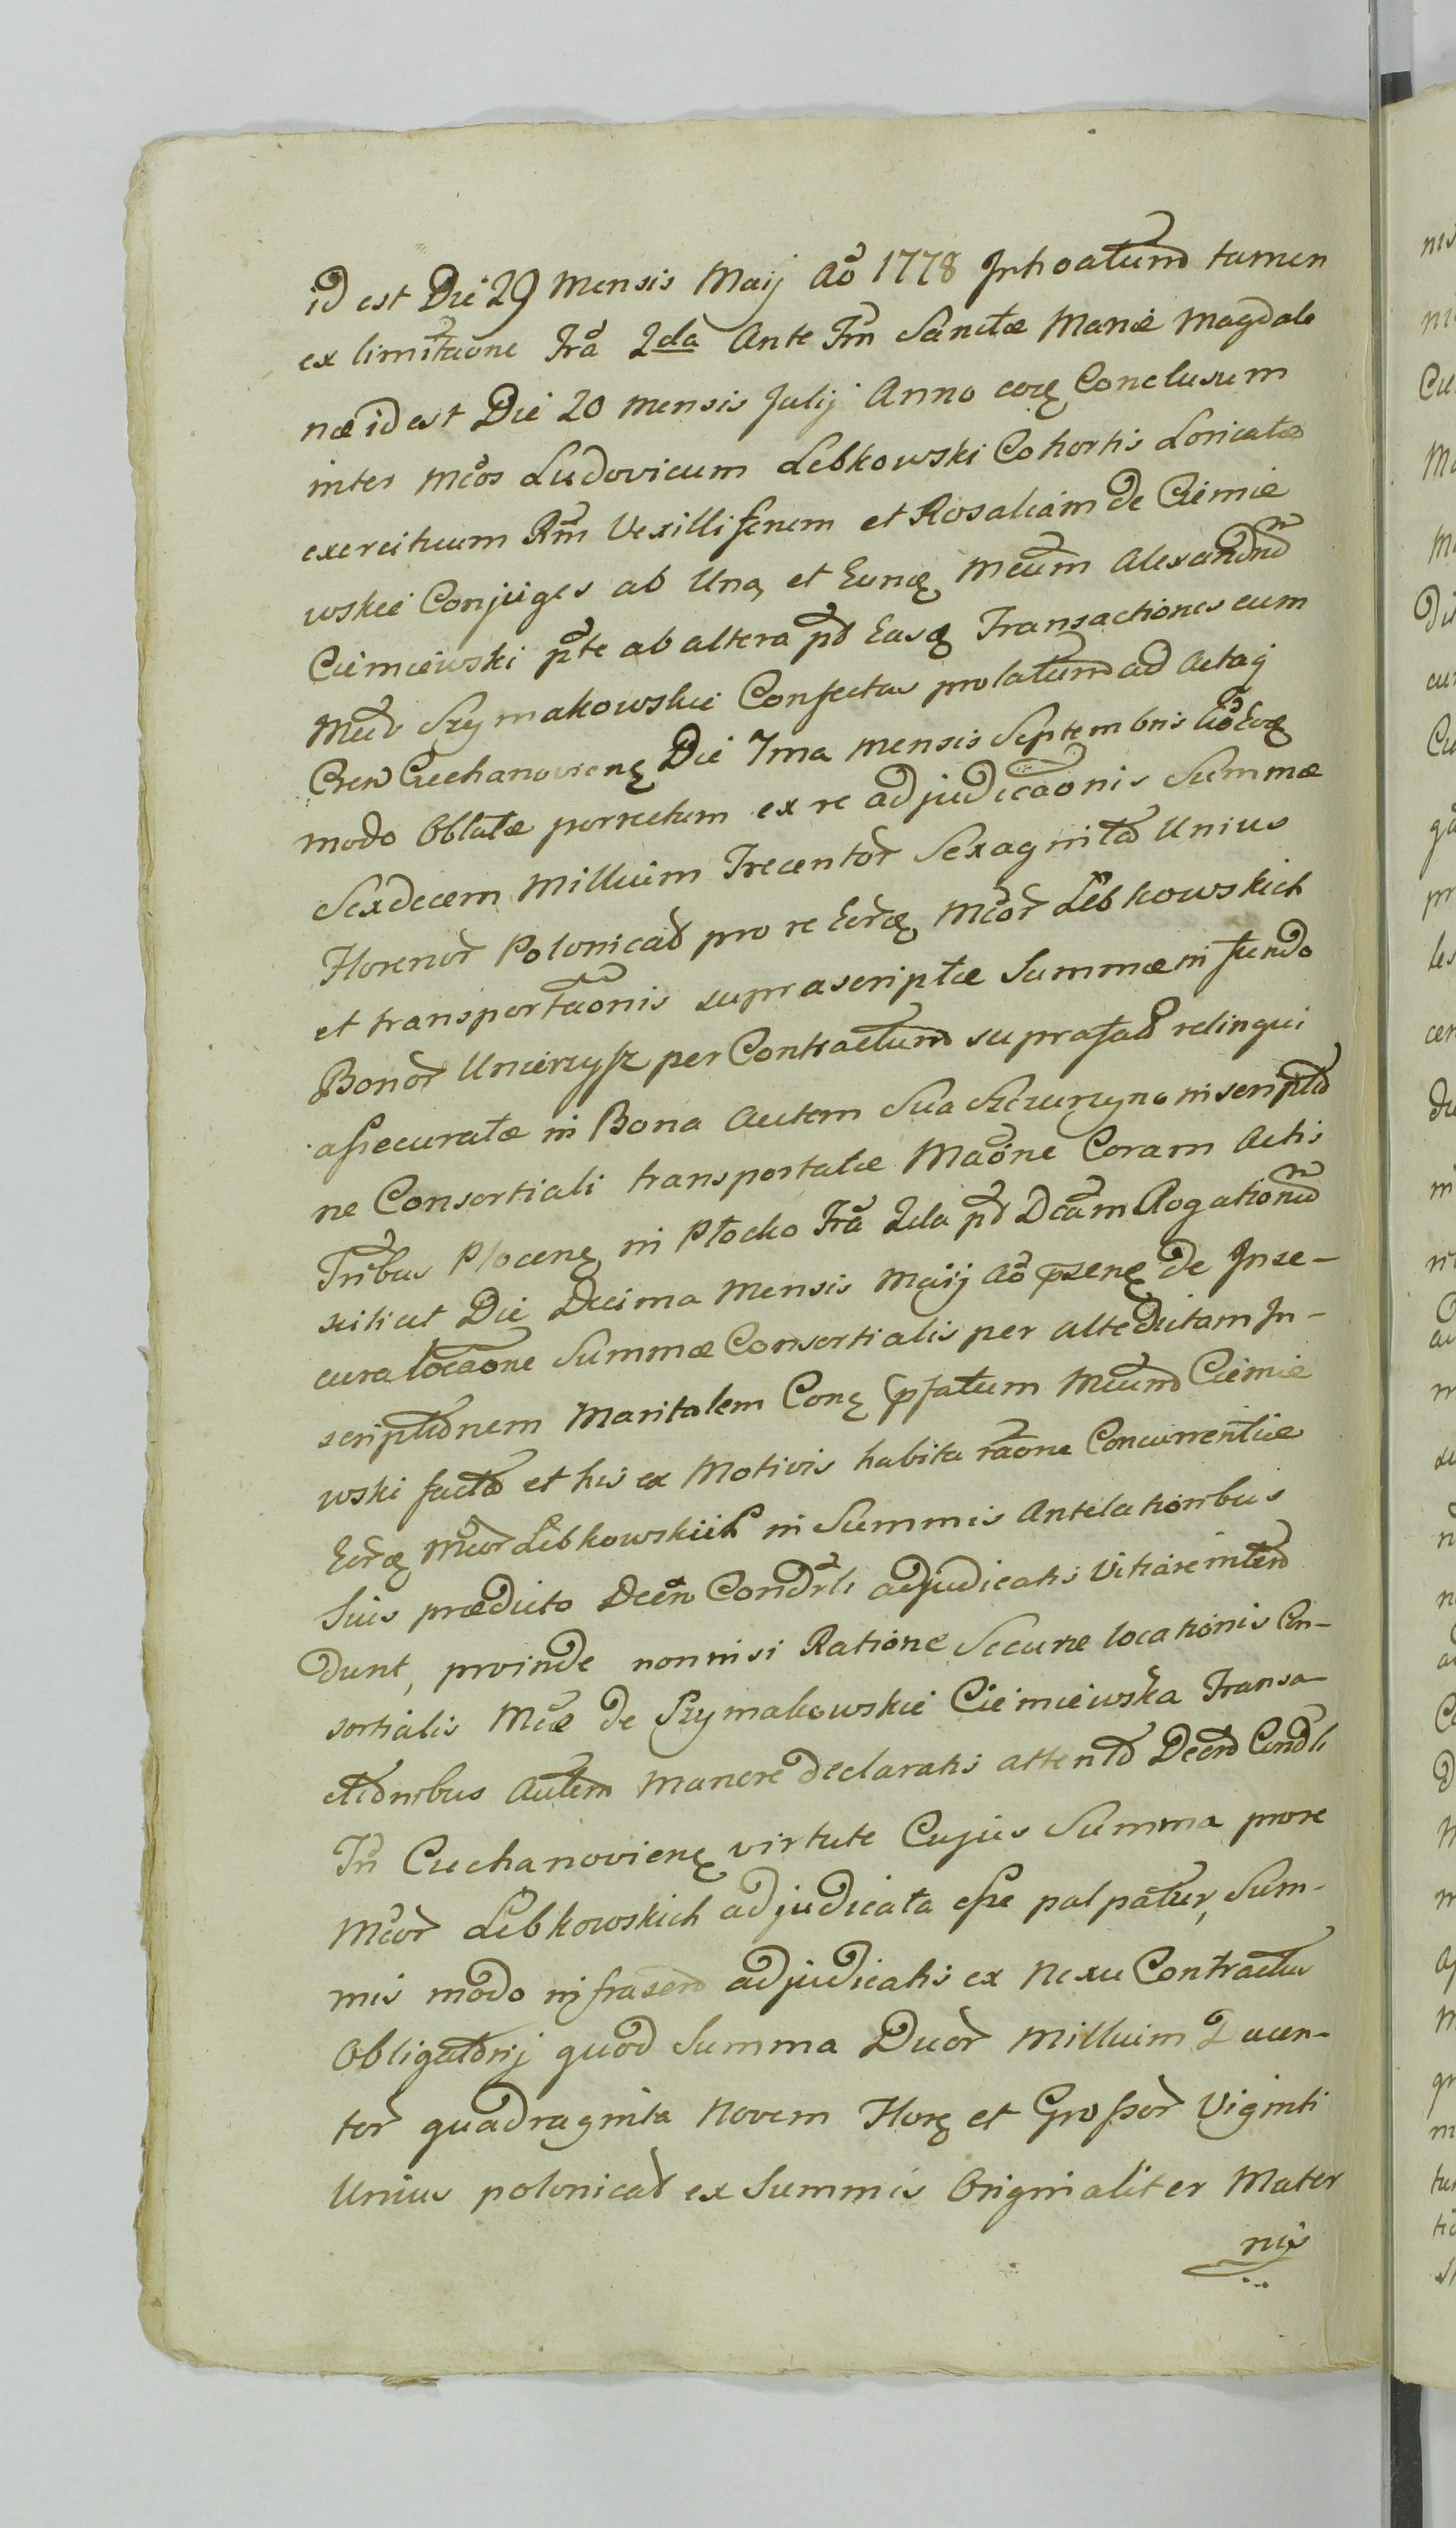 id est Die 29 Mensis Maij Aô 1778 Inhoatum tamen
ex limitaone Fra 2da Ante Fm Sanctæ Mariæ Magdale
næ id est Die 20 mensis Julij Anno eoq Conclusum
inter Mcos Ludovicum Lebkowski Cohortis Loricatæ
exercituum Rm Vexilliferum et Rosaliam de Ciemie
wskie Conjuges ab Una, et Eunq Mcum Alexandrum
Ciemiewski pte ab altera pd Easq Transactiones cum
Mcis Szymakowskie Confectas prolatum ad Actaq
Cren Ciechanovienę Die 7ma Mensis Septembris Aô Eoq
modo Oblatæ porrectum ex re adjudicaonis Summæ
Sexdecem Millium Trecentor Sexaginta Unius
Florenor Polonical pro re Eorq Mcor Lebkowskich
et transportaonis suprascriptæ Summæ in fundo
Bonor Unierzysz per Contractum suprafat relinqui
assecuratæ in Bona autem Sua Szczurzyno inscriptio
ne Consortiali transportatæ Maône Coram Actis
Tribus Plocenę in Płocko Fra 2da pd Dcam Rogationum
scilicet Die Decima Mensis Maij Aô pzenę de Inse-
cura locaone Summæ Consortialis per altedictam In-
scriptionem Maritalem Conę pfatum Mcum Ciemie
wski facta et his ex Motivis habita raone Concurrentiæ
Eorq Mcor Lebkowskich in Summis Antelationibus
Suis prædicto Decro Condrli adjudicatis Vitiare inten
dunt, proinde nonnisi Ratione Securæ locationis Con-
sortialis Mcæ de Szymakowskie Ciemiewska Transa
ctionibus Autem Manere declaratis attento Decro Condli
Tri Ciechanovienę virtute Cujus Summa prore
Mcor Lebkowskich adjudicata esse palpatur, Sum-
mis modo infrascr adjudicatis ex Nexu Contractus
Obligatorij quod Summa Duor Millium Ducen-
tor quadraginta Novem Florę et Grossor Viginti
Unius polonical ex Summis Originaliter Mater
nis